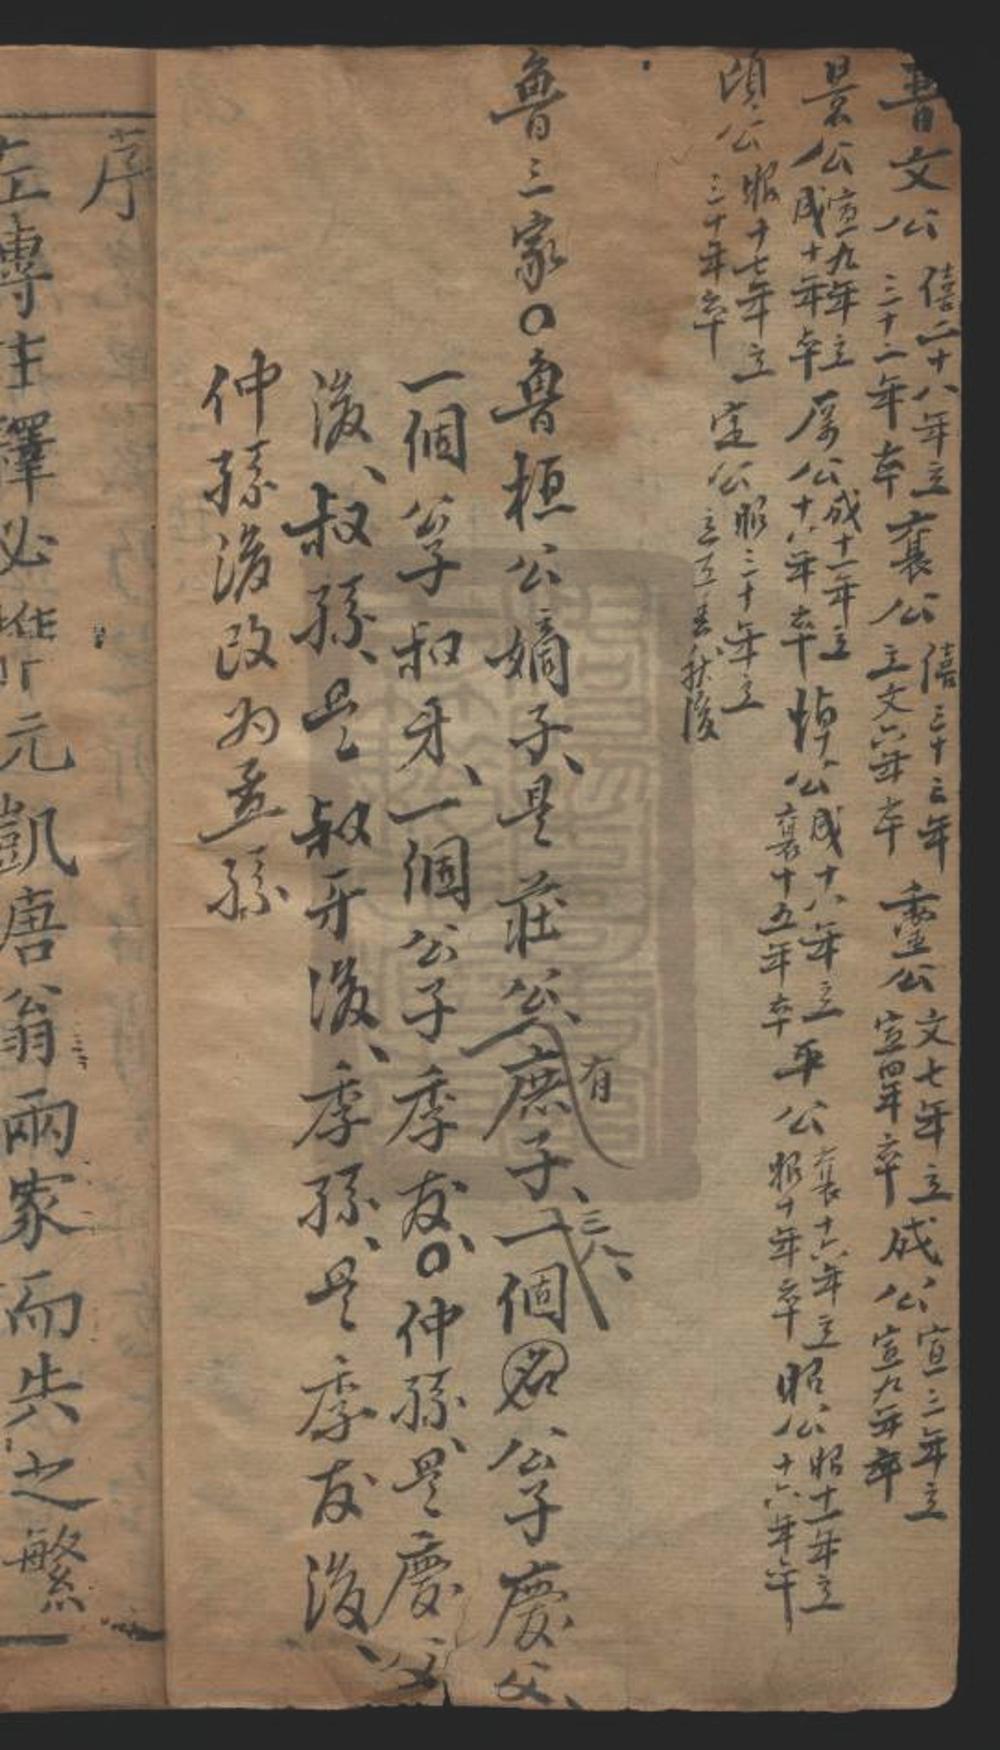 晋文公 僖二十八年立 三十二年卒 襄公 僖三十三年立 文六年卒 靈公 文七年立 宣四年卒 成公 宣三年立 宣九年卒
景公 宣九年立 成十年卒 厉公 成十一年立 十八年卒 悼公 成十八年立 襄十五年卒 平公 襄十六年立 昭十年卒 昭公 昭十一年立 十六年卒
頃公 昭十七年立 三十年卒 定公 昭三十年立 春秋後
魯三家〇魯桓公嫡子、是莊公、庶子有三人、一個名公子慶父、
一個公子叔牙、一個公子季友〇仲孫、是慶父
後、叔孫、是叔牙後、季孫、是季友後、
仲孫後改为孟孫
序
左傳註釋必推元凱唐翁兩家而失之繁